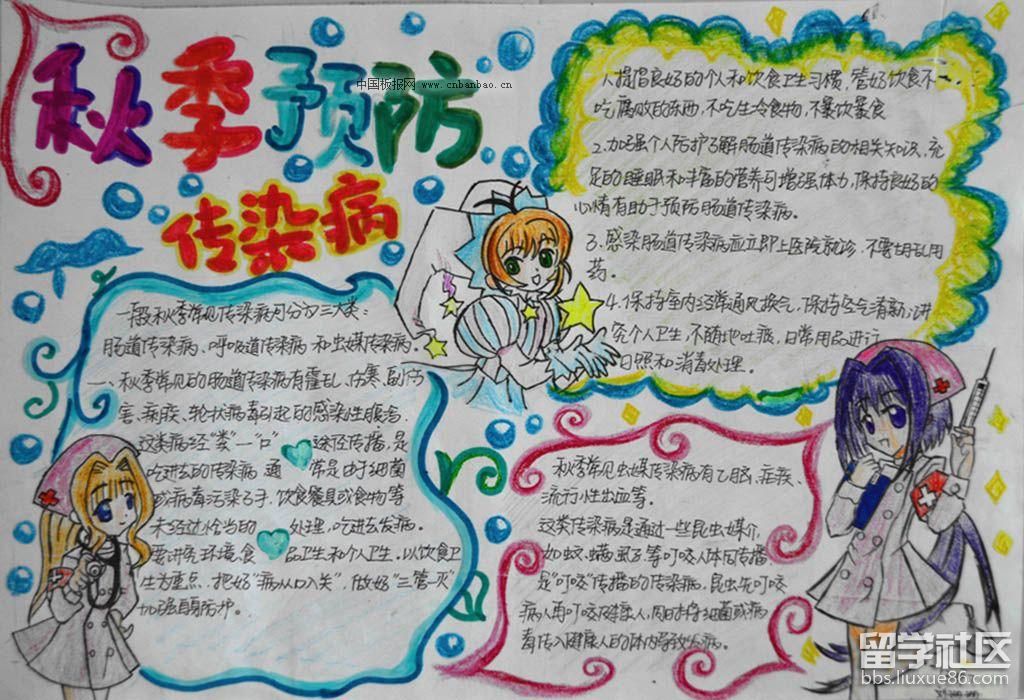 秋季预防
中国板报网 www.cnbanbao.cn
传染病
一般秋季常见传染病可分为三大类:
肠道传染病、呼吸道传染病和虫媒传染病
一、秋季常见的肠道传染病有霍乱、伤寒、副伤
害、痢疾、轮状病毒引起的感染性腹泻。
这类病经“粪”一“口”途径传播,是
吃进去的传染病 通常是由于细菌
或病毒污染了手、饮食餐具或食物等
未经过恰当的处理,吃进去发病。
要讲究环境、食品卫生和个人卫生。以饮食卫
生为重点,把好“病从口入关”,做好“三管一灭”
加强自身防护。
人提倡良好的个人和饮食卫生习惯,管好饮食不
吃腐败的东西,不吃生冷食物,不暴饮暴食
2.加强个人防护了解肠道传染病的相关知识,充
足的睡眠和丰富的营养可增强体力,保持良好的
心情有助于预防肠道传染病。
3.感染肠道传染病应立即上医院就诊,不要胡乱用
药。
4.保持室内经常通风换气,保持空气清新,讲
究个人卫生,不随地吐痰,日常用品进行
日照和消毒处理。
秋季常见虫媒传染病有乙脑、疟疾、
流行性出血等。
这类传染病是通过一些昆虫媒介,
如蚊、螨、虱子等叮咬人体而传播
是“叮咬”传播的传染病。昆虫先叮咬
病人再叮咬健康人,同时将细菌或病
毒传入健康人的体内导致发病。
留学社区
bbs.liuxue86.com